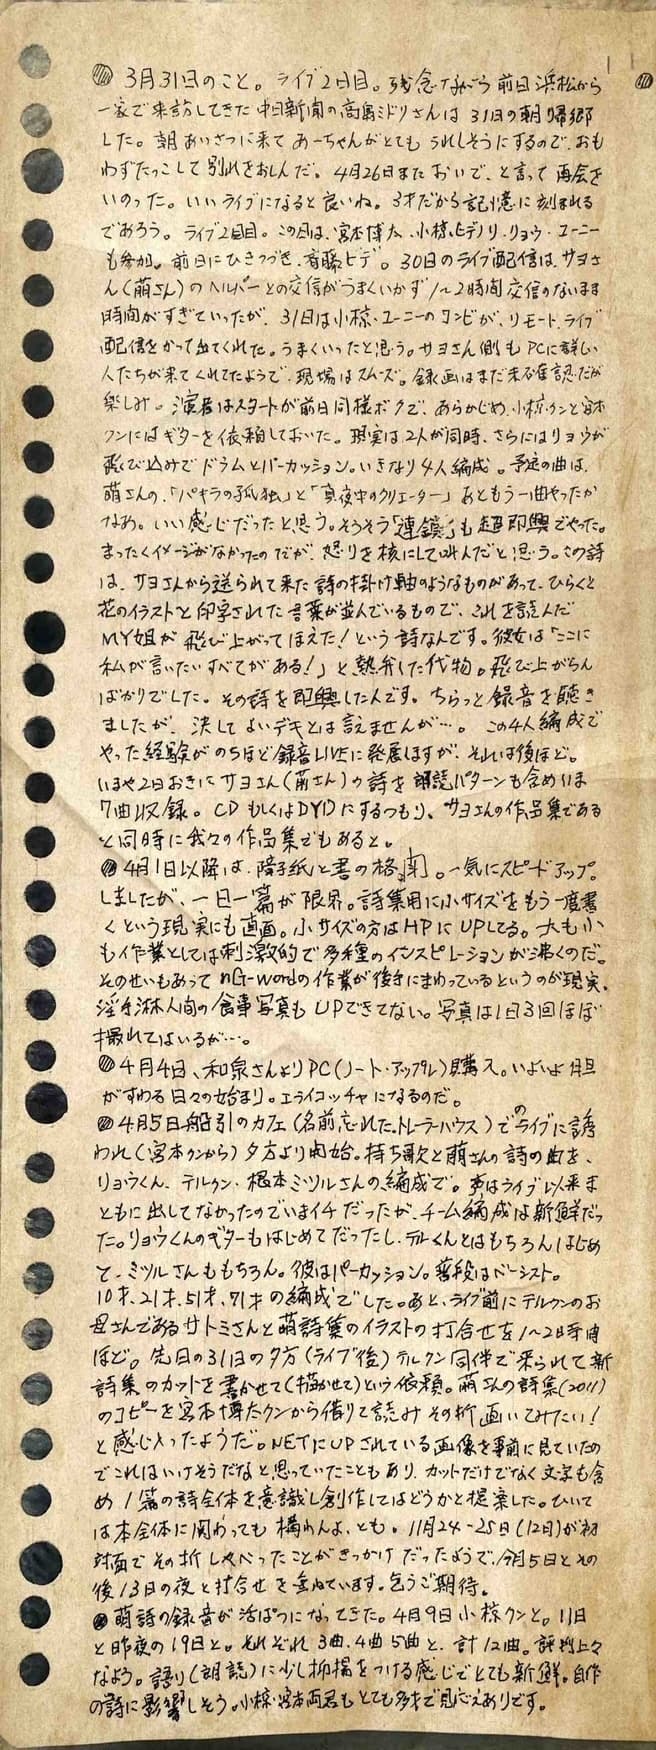 3月31日のこと。ライブ2日目。残念ながら前日浜松から
一家で来訪してきた中日新聞の高島ミドリさんは31日の朝帰郷
した。朝あいさつに来てあーちゃんがとてもうれしそうにするので、おも
わずだっこして別れをおしんだ。4月26日またおいで、と言って再会を
いのった。いいライブになると良いね。3才だから記憶に刻まれる
であろう。ライブ2日目。この日は、宮本博太・小椋・ヒデノリ・リョウ・ユーニー
も参加。前日にひきつづき、斉藤ヒデ。30日のライブ配信は、サヨさ
ん(萌さん)のヘルパーとの交信がうまくいかず1〜2時間交信のないまま
時間がすぎていったが、31日は小椋・ユーニーのコンビが、リモートライブ
配信をかって出てくれた。うまくいったと思う。サヨさん側もPCに詳しい
人たちが来てくれてたようで、現場はスムーズ。録画はまだ未確認だが
楽しみ。演者はスタートが前日同様ボクで、あらかじめ、小椋クンと宮本
クンにはギターを依頼しておいた。現実は2人が同時、さらにはリョウが
飛び込みでドラムとパーカッション。いきなり4人編成。予定の曲は、
萌さんの、「パキラの孤独」と「真夜中のクリエーター」あともう一曲やったか
なあ。いい感じだったと思う。そうそう「連鎖」も超即興でやった。
まったくイメージがなかったのだが、怒りを核にして叫んだと思う。この詩
は、サヨさんから送られて来た詩の掛け軸のようなものがあって、ひらくと
花のイラストと印字された言葉が並んでいるもので、これを読んだ
MY姐が飛び上がってほえた!という詩なんです。彼女は「ここに
私が言いたいすべてがある!」と熱弁した代物。飛び上がらん
ばかりでした。その詩を即興したんです。ちらっと録音を聴き
ましたが、決してよいデキとは言えませんが…。この4人編成で
やった経験がのちほど録音LIVEに発展しますが、それは後ほど。
いまや2日おきにサヨさん(萌さん)の詩を朗読パターンも含めいま
7曲収録。CDもしくはDVDにするつもり、サヨさんの作品集である
と同時に我々の作品集でもあると。
4月1日以降は、障子紙と書の格闘。一気にスピードアップ。
しましたが、一日一篇が限界。詩集用に小サイズをもう一度書
くという現実にも直面。小サイズの方はHPにUPしてる。大も小
も作業としては刺激的で多種のインスピレーションが沸くのだ。
そのせいもあってnG-wordの作業が後手にまわっているというのが現実。
淫手淋人間の食事写真もUPできてない。写真は1日3回ほぼ
撮れてはいるが…。
4月4日、和泉さんよりPC(ノート・アップル)購入。いよいよ胆
がすわる日々の始まり。エライコッチャになるのだ。
4月5日船引のカフェ(名前忘れた。トレーラーハウス)でのライブに誘
われ(宮本クンから)夕方より開始。持ち歌と萌さんの詩の曲を、
リョウくん、テルクン・根本ミツルさんの編成で。声はライブ以来ま
ともに出してなかったのでいまイチだったが、チーム編成は新鮮だっ
た。リョウくんのギターもはじめてだったし、テルくんとはもちろんはじめ
て、ミツルさんももちろん。彼はパーカッション。普段はベーシスト。
10才、21才、51才、71才の編成でした。あと、ライブ前にテルクンのお
母さんであるサトミさんと萌詩集のイラストの打合せを1〜2時間
ほど。先日の31日の夕方(ライブ後)テルクン同伴で来られて新
詩集のカットを書かせて(描かせて)という依頼。萌さんの詩集(2011)
のコピーを宮本博太クンから借りて読みその折画いてみたい!
と感じ入ったようだ。NETにUPされている画像を事前に見ていたの
でこれはいけそうだなと思っていたこともあり、カットだけでなく文字も含
め1篇の詩全体を意識し創作してはどうかと提案した。ひいて
は本全体に関わっても構わんよ、とも。11月24-25日(12日)が初
対面でその折しゃべったことがきっかけだったようで、今月5日とその
後13日の夜と打合せを重ねています。乞うご期待。
萌詩の録音が活ぱつになってきた。4月9日小椋クンと。11日
と昨夜の19日と。それぞれ3曲、4曲5曲と、計12曲。評判上々
なよう。語り(朗読)に少し抑揚をつける感じでとても新鮮。自作
の詩に影響しそう。小椋・宮本両君もとても多才で見応えありです。